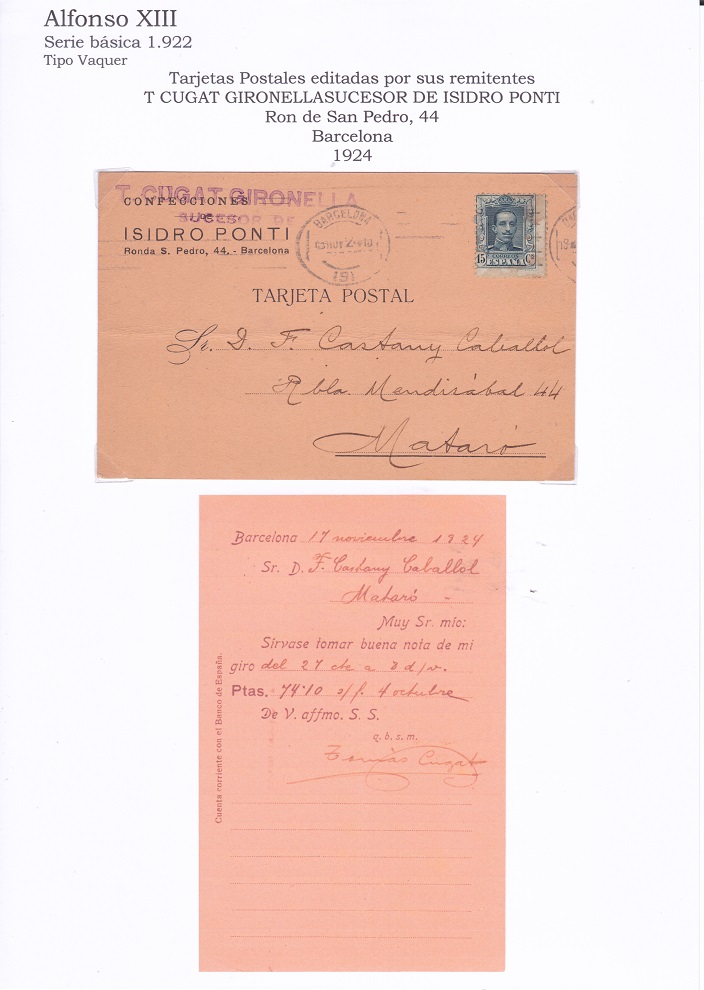 Alfonso XIII
Serie básica 1.922
Tipo Vaquer
Tarjetas Postales editadas por sus remitentes
T CUGAT GIRONELLASUCESOR DE ISIDRO PONTI
Ron de San Pedro, 44
Barcelona
1924
T. CUGAT GIRONELLA
SUCESOR DE
CONFECCIONES
DE
ISIDRO PONTI
Ronda S. Pedro, 44. - Barcelona
BARCELONA
CORREOS
15 Cs
ESPAÑA
TARJETA POSTAL
Sr. D. F. Castany Caballol
Rbla. Mendizábal 44
Mataró
Barcelona 17 noviembre 1924
Sr. D. F. Castany Caballol
Mataró -
Muy Sr. mío:
Sírvase tomar buena nota de mi
giro del 27 cte a 8 d/v.
Ptas. 74'10 s/f. 4 octubre
De V. affmo. S. S.
q. b. s. m.
Tomás Cugat
Cuenta corriente con el Banco de España.